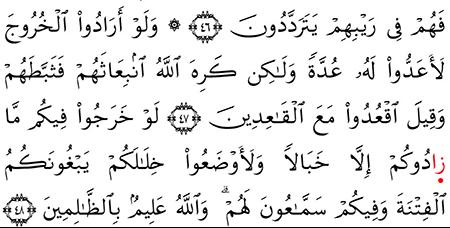 فَهُمْ فِى رَيْبِهِمْ يَتَرَدَّدُونَ ٤٦ ۞ وَلَوْ أَرَادُوا۟ ٱلْخُرُوجَ
لَأَعَدُّوا۟ لَهُۥ عُدَّةً وَلَـٰكِن كَرِهَ ٱللَّهُ ٱنۢبِعَاثَهُمْ فَثَبَّطَهُمْ
وَقِيلَ ٱقْعُدُوا۟ مَعَ ٱلْقَـٰعِدِينَ ٤٧ لَوْ خَرَجُوا۟ فِيكُم مَّا
زَادُوكُمْ إِلَّا خَبَالًا وَلَأَوْضَعُوا۟ خِلَـٰلَكُمْ يَبْغُونَكُمُ
ٱلْفِتْنَةَ وَفِيكُمْ سَمَّـٰعُونَ لَهُمْ ۗ وَٱللَّهُ عَلِيمٌۢ بِٱلظَّـٰلِمِينَ ٤٨